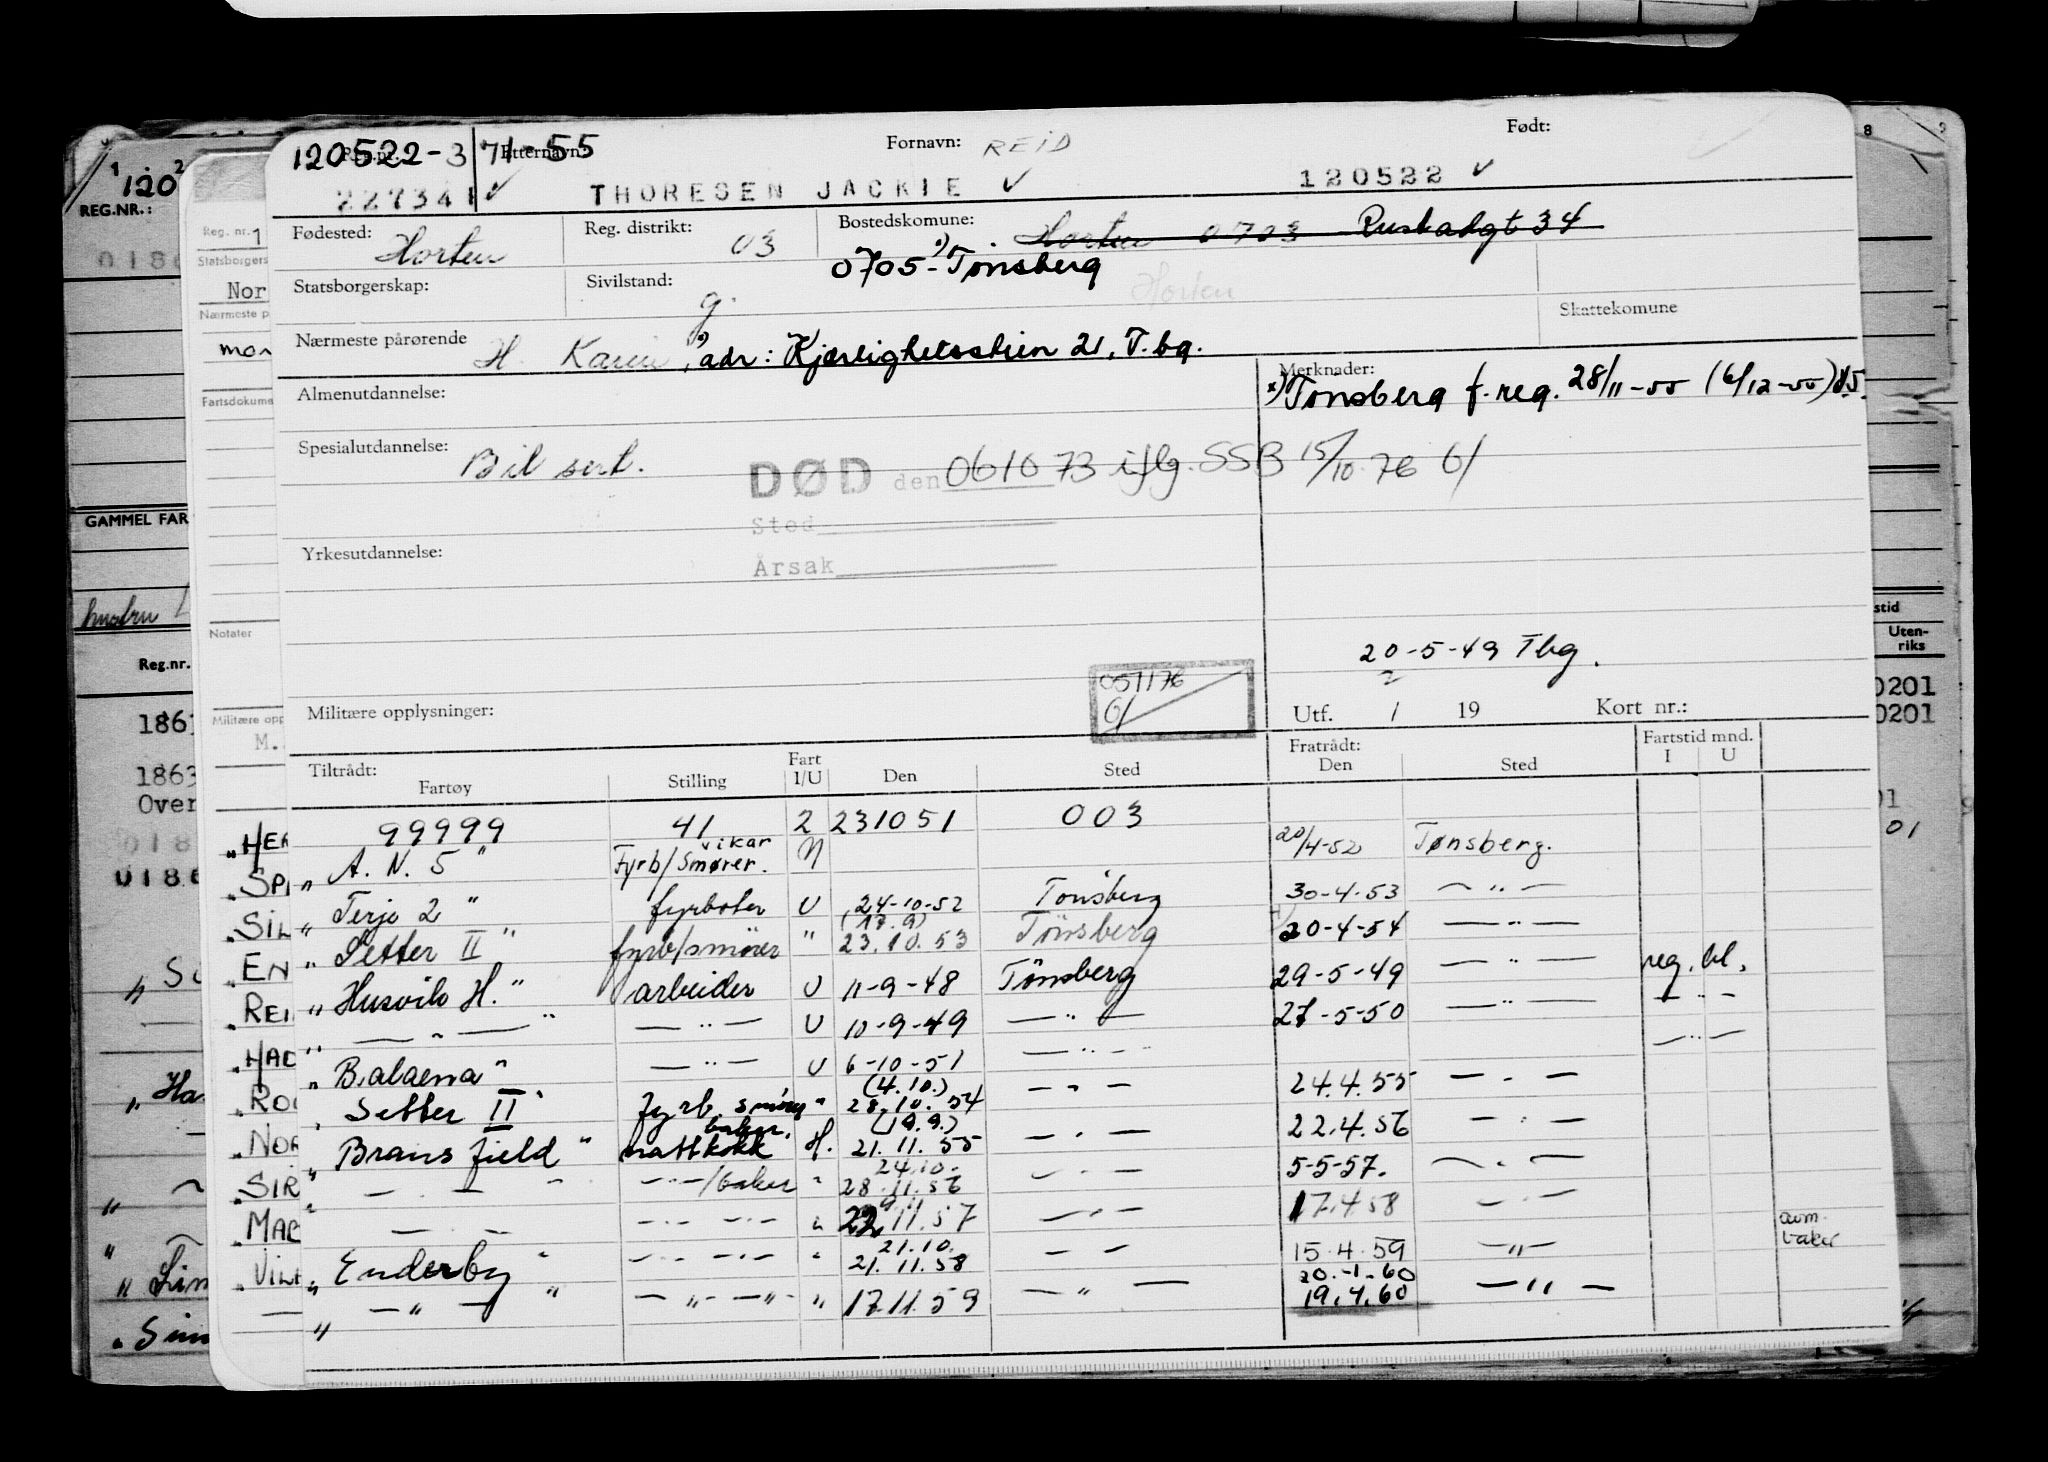 120522-371-55
Reg.nr. Etternavn: Fornavn: REID Født:
227341 ✓ THORESEN JACKIE ✓ 120522 ✓
Fødested: Horten Reg. distrikt: 03 Bostedskomune: Horten 0703 Rustadgt 34
x) 0705-Tønsberg
Statsborgerskap: Sivilstand: g. Horten
Skattekomune
Nærmeste pårørende H. Karin, adr: Kjærlighetsstien 21, T.bg.
Almenutdannelse: Merknader:
x) Tønsberg f. reg. 28/11-55 (6/12-55)
Spesialutdannelse: Bil sert.
DØD den 061073 iflg. SSB 15/10.76
Sted
Yrkesutdannelse:
Årsak
20-5-49 Tbg.
051176
Militære opplysninger: Utf. / 19 Kort nr.:
Tiltrådt: Fratrådt: Fartstid mnd.
Fartøy Stilling Fart I/U Den Sted Den Sted I U
99999 41 2 231051 003
"A. N. 5" Fyrb/Smører. vikar N 20/4-52 Tønsberg.
"Terje 2" fyrbøter U 24-10-52 Tønsberg 30-4-53 — " —
(17.9)
"Setter II" fyrb/smører " 23.10.53 Tønsberg 20-4-54 — " —
"Husvik H." arbeider U 11-9-48 Tønsberg 29-5-49 — " — reg. bl.
" — " — " — " — U 10-9-49 — " — 27-5-50 — " — — " —
"Balaena" — " — U 6-10-51 — " — — " —
(4.10.)
"Setter II" fyrb. smører " 28.10.54 — " — 24.4.55 — " —
baker. (19.9.)
"Brans field" nattkokk H. 21.11.55 — " — 22.4.56 — " —
24.10.
" — " — " — " —/baker " 28.11.56 — " — 5-5-57. — " —
— " — — " — — " — " 22.11.57 — " — 17.4.58 — " —
21.10.
"Enderby" — " — — " — " 21.11.58 — — 15.4.59 — " —
avm. baker
20.-1-60
" — " — " — " — — " — " 17.11.59 — " — 19.4.60 — " —
REG.NR.:
Reg. nr.
Statsborgers
Nor
Nærmeste p
mor
Fartsdokume
GAMMEL FAR
Notater
Reg.nr.
Militære opp
M.
1863
Over
stid
Uten-
riks
0201
0201
01
"HER
"SPI
"SIL
"EN
"REI
"HAD
"NOR
"SIR
"VIL